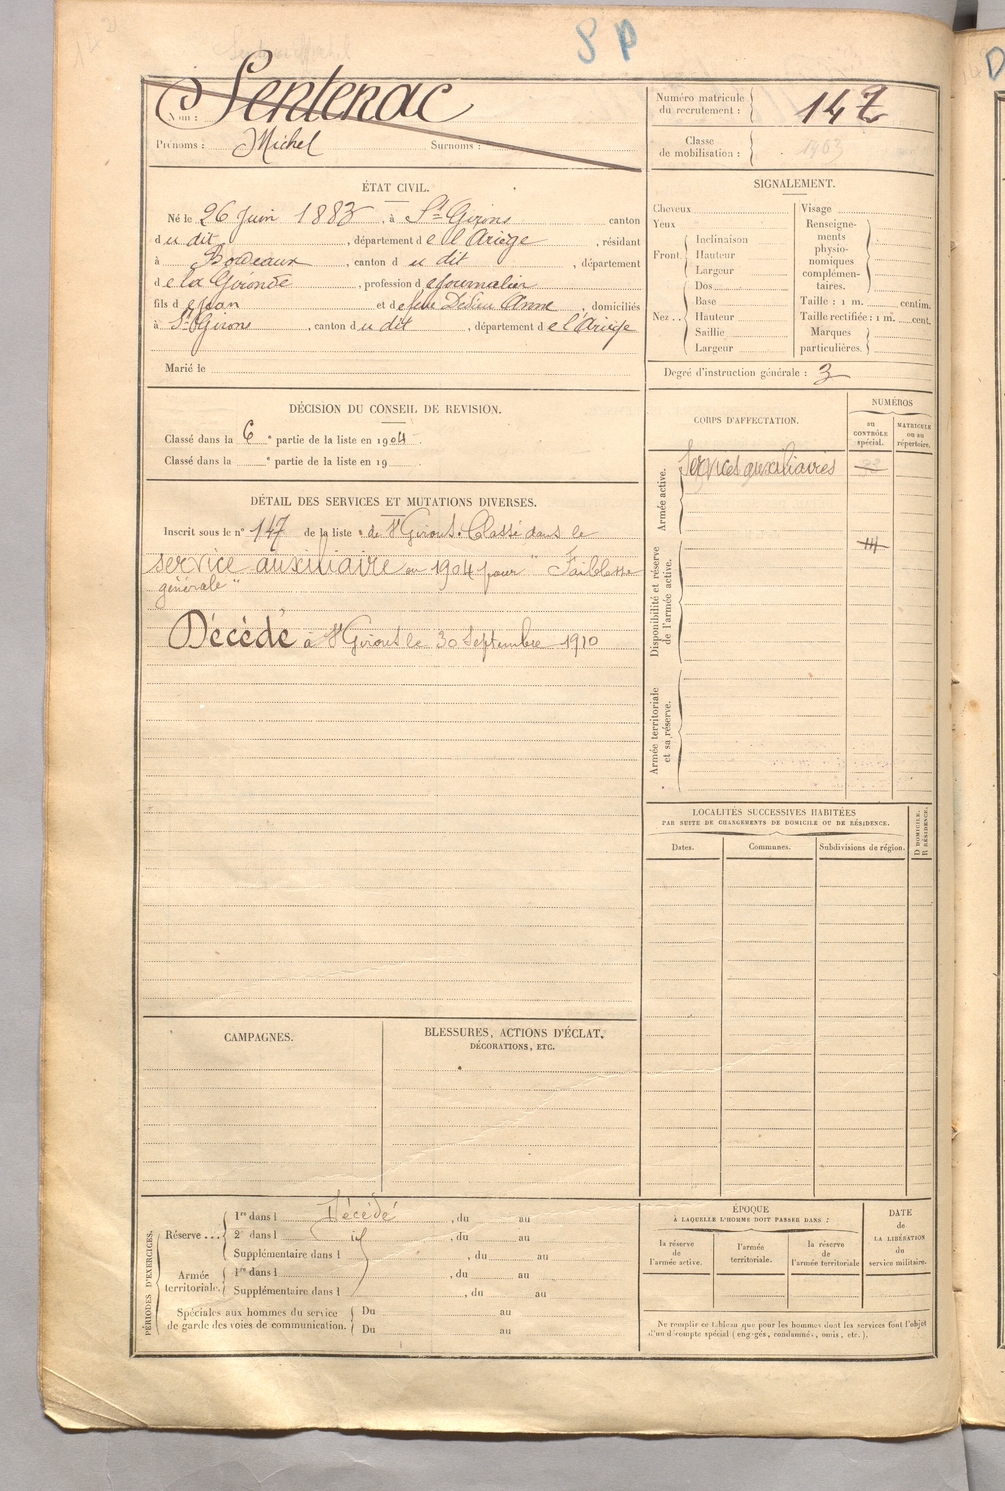 S P
Nom : Sentenac
Prénoms : Michel Surnoms :
Numéro matricule
du recrutement : 147
Classe
de mobilisation : 1903
ÉTAT CIVIL.
Né le 26 Juin 1883, à St Girons canton
du dit, département de l'Ariège, résidant
à Bordeaux, canton du dit, département
de la Gironde, profession de journalier
fils de Jean et de feue Dedieu Anne, domiciliés
à St Girons, canton du dit, département de l'Ariège
Marié le
SIGNALEMENT.
Cheveux
Yeux
Front.
Inclinaison
Hauteur
Largeur
Nez..
Dos
Base
Hauteur
Saillie
Largeur
Visage
Renseigne-
ments
physio-
nomiques
complémen-
taires.
Taille : 1 m. centim.
Taille rectifiée : 1 m. cent.
Marques
particulières.
Degré d'instruction générale : 3
DÉCISION DU CONSEIL DE REVISION.
Classé dans la 6e partie de la liste en 1904.
Classé dans la e partie de la liste en 19
DÉTAIL DES SERVICES ET MUTATIONS DIVERSES.
Inscrit sous le n° 147 de la liste de St Girons. Classé dans le
service auxiliaire en 1904 pour "Faiblesse
générale"
Décédé à St Girons le 30 Septembre 1910
CORPS D'AFFECTATION.
NUMÉROS
au
CONTRÔLE
spécial.
MATRICULE
ou au
répertoire.
Armée active.
Services auxiliaires
Disponibilité et réserve
de l'armée active.
Armée territoriale
et sa réserve.
LOCALITÉS SUCCESSIVES HABITÉES
PAR SUITE DE CHANGEMENTS DE DOMICILE OU DE RÉSIDENCE.
Dates.
Communes.
Subdivisions de région.
D DOMICILE.
R RÉSIDENCE.
CAMPAGNES.
BLESSURES, ACTIONS D'ÉCLAT,
DÉCORATIONS, ETC.
PÉRIODES D'EXERCICES.
Réserve ...
1re dans l Décédé, du au
2e dans l, du au
Supplémentaire dans l, du au
Armée
territoriale.
1re dans l, du au
Supplémentaire dans l, du au
Spéciales aux hommes du service
de garde des voies de communication.
Du au
Du au
ÉPOQUE
À LAQUELLE L'HOMME DOIT PASSER DANS :
la réserve
de
l'armée active.
l'armée
territoriale.
la réserve
de
l'armée territoriale
DATE
de
LA LIBÉRATION
du
service militaire.
Ne remplir ce tableau que pour les hommes dont les services font l'objet
d'un décompte spécial (engagés, condamnés, omis, etc.).
D